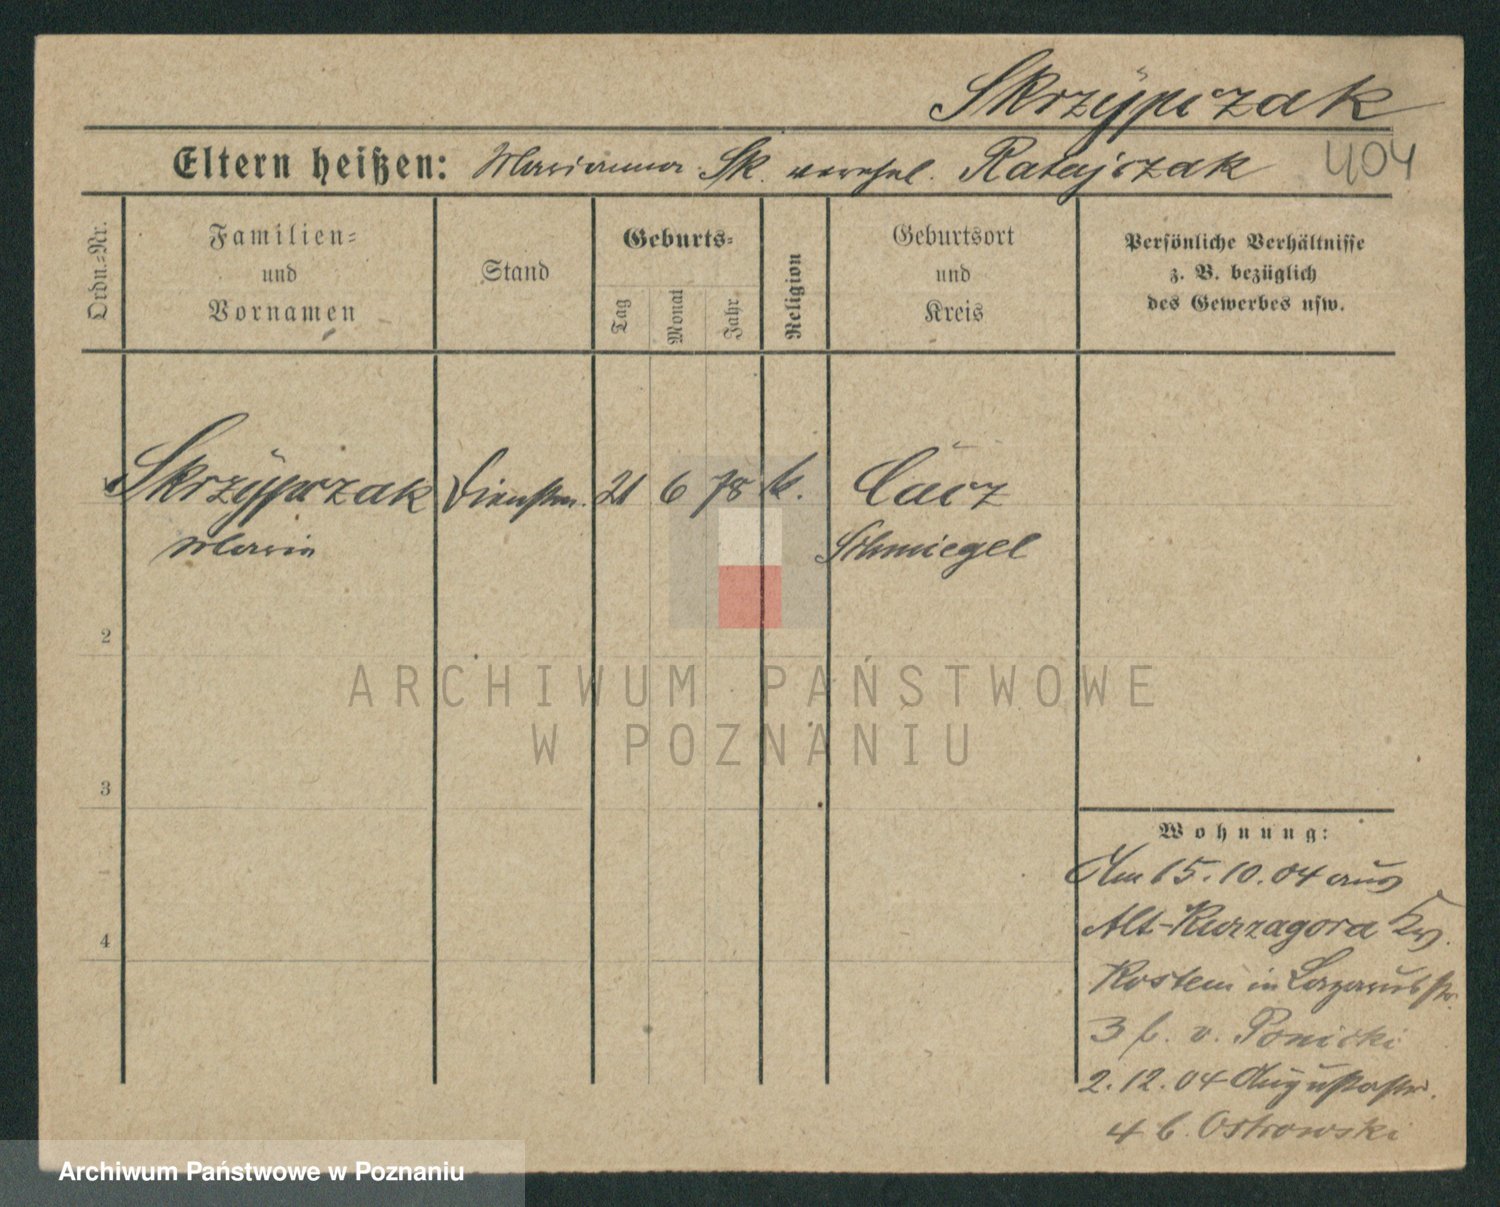 Skrzÿpczak
Eltern heißen: Marianna Sk. verehel. Ratajczak 404
Ordn.=Nr.
Familien=
und
Vornamen
Stand
Geburts=
Tag
Monat
Jahr
Religion
Geburtsort
und
Kreis
Persönliche Verhältnisse
z. B. bezüglich
des Gewerbes usw.
Skrzÿpczak Dienstm. 21 6 78 k. Cacz
Maria Schmiegel
2
3
4
Wohnung:
Am 15.10.04 aus
Alt-Kurzagora Kr.
Kosten in Lazarusstr.
3 b. v. Ponicki
2.12.04 Augustastr.
4 b. Ostrowski
ARCHIWUM PAŃSTWOWE
W POZNANIU
Archiwum Państwowe w Poznaniu